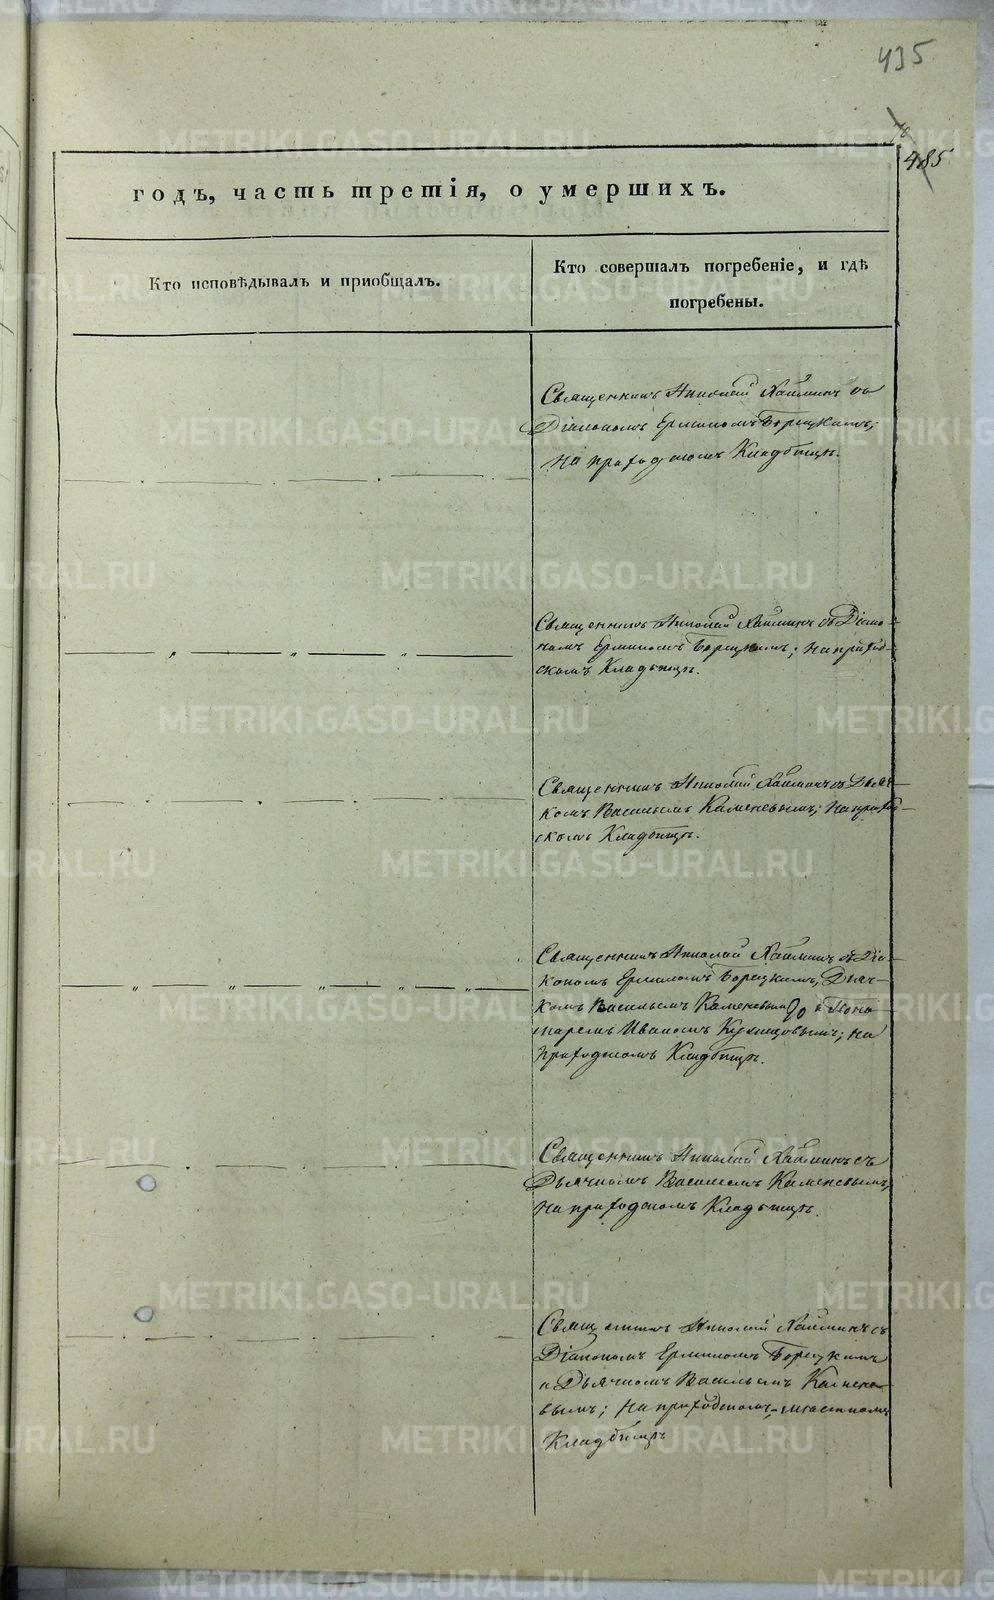 435
485
годъ, часть третія, о умершихъ.
Кто исповѣдывалъ и приобщалъ.
Кто совершалъ погребеніе, и гдѣ
погребены.
Священникъ Николай Хаймин съ
Діакономъ Ермиломъ Борецкимъ;
на приходскомъ Кладбищѣ.
Священникъ Николай съ Діако-
номъ Ермиломъ Борецкимъ; на приход-
скомъ Кладбищѣ.
Священникъ Николай съ Дьяч-
комъ Васильемъ Каменевымъ; на приход-
скомъ Кладбищѣ.
Священникъ Николай съ Діа-
кономъ Ермиломъ Борецкимъ, Дьяч-
комъ Васильемъ Каменевымъ и Поно-
маремъ Иваномъ Кузнецовымъ; на
приходскомъ Кладбищѣ.
Священникъ Николай съ
Дьячкомъ Васильемъ Каменевымъ,
на приходскомъ Кладбищѣ.
Священникъ Николай съ
Діакономъ Ермиломъ Борецкимъ
и Дьячкомъ Васильемъ Камене-
вымъ; на приходскомъ
Кладбищѣ
METRIKI.GASO-URAL.RU